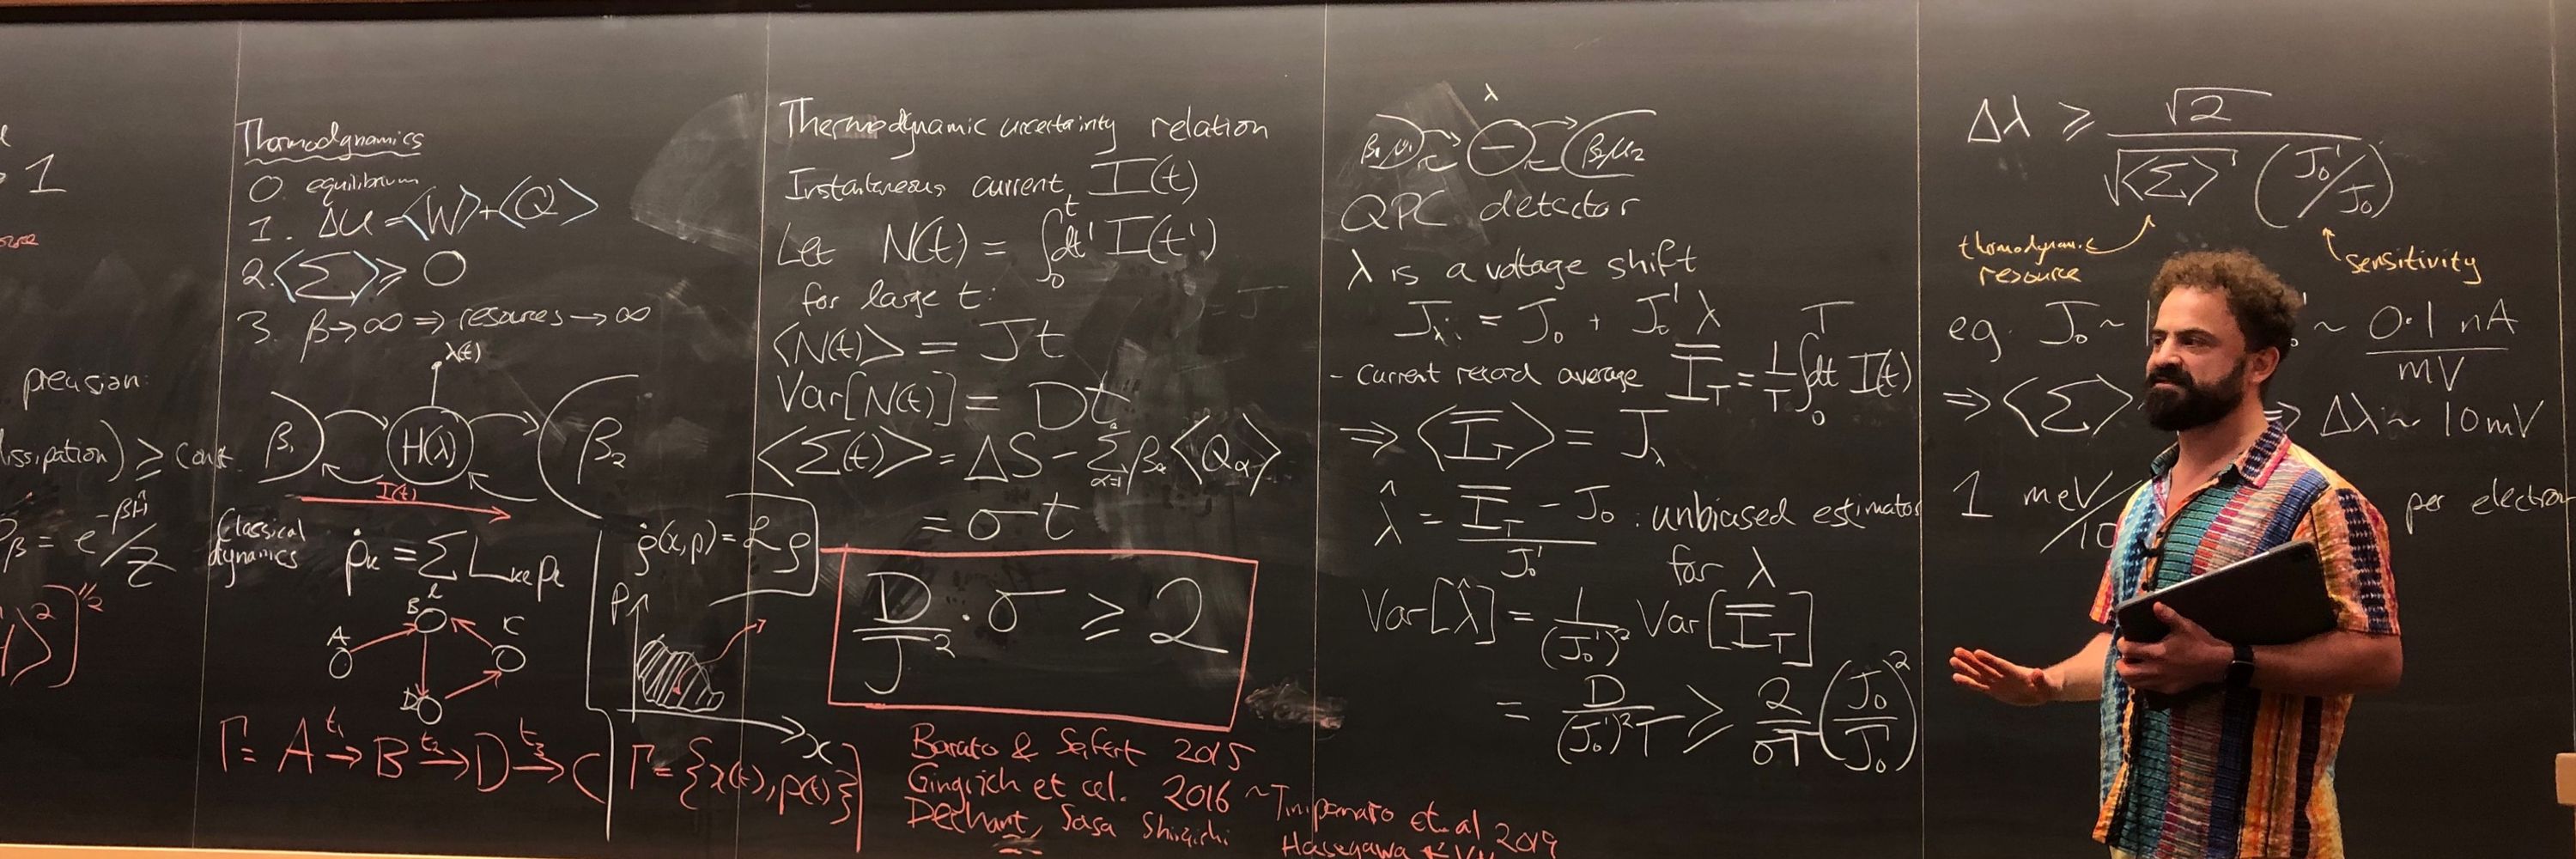 1
precision:
dissipation) ≥ const.
ρ_β = e^{-βĤ}/Z
⟩²]^{1/2}
Thermodynamics
0. equilibrium
1. ΔU = ⟨W⟩+⟨Q⟩
2. ⟨Σ⟩ ≥ 0
3. β→∞ ⇒ resources → ∞
λ(t)
β₁ H(λ) β₂
I(t)
Classical
dynamics
ṗ_k = Σ_ℓ L_{kℓ} p_ℓ
A B C D
Γ = A →^{t₁} B →^{t₂} D →^{t₃} C
ρ̇(x,p) = ℒρ
p
x
Γ = {x(t), p(t)}
Thermodynamic uncertainty relation
Instantaneous current I(t)
Let N(t) = ∫₀^t dt' I(t')
for large t:
⟨N(t)⟩ = Jt
Var[N(t)] = Dt
⟨Σ(t)⟩ = ΔS − Σ_{α=1} β_α⟨Q_α⟩
= σt
D/J² · σ ≥ 2
Barato & Seifert 2015
Gingrich et al. 2016
Dechant, Sasa
~Timpanaro et al 2019
Hasegawa &
λ
β₁μ₁ β₂μ₂
QPC detector
λ is a voltage shift
J_λ = J₀ + J₀' λ
- current record average Ī_T = 1/T ∫₀^T dt I(t)
⇒ ⟨Ī_T⟩ = J_λ
λ̂ = (Ī_T − J₀)/J₀' : unbiased estimator
for λ
Var[λ̂] = 1/(J₀')² Var[Ī_T]
= D/((J₀')²T) ≥ 2/(σT) (J₀/J₀')²
Δλ ≥ √2/(√⟨Σ⟩ (J₀'/J₀))
thermodynamic
resource
sensitivity
eg. J₀ ~
' ~ 0.1 nA/mV
⇒ ⟨Σ⟩
⇒ Δλ ~ 10mV
1 meV/10
per electron